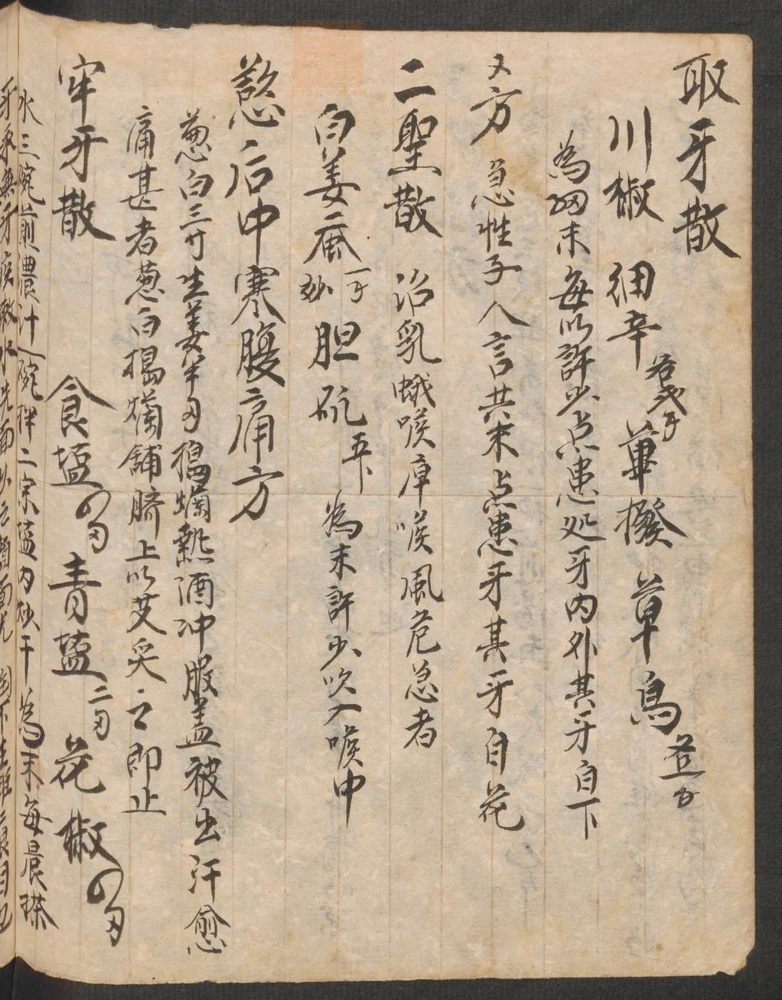 取牙散
川椒 细辛 各戋子 蓽撥 草烏 各子
為細末每以許少点患処牙内外其牙自下
又方 急性子人言共末点患牙其牙自花
二聖散 治乳蛾喉庫喉風危急者
白姜蚕 一子 炒 胆矾 五下 為末許少吹入喉中
慾后中寒腹痛方
葱白三寸生姜半刄搗爛熱酒冲服盖被出汗愈
痛甚者葱白搗爛鋪臍上以艾灸之即止
牢牙散 食塩四刄青塩二刄花椒四刄
水三碗煎濃汁一碗拌二宗塩内炒干為末每晨搽
牙永無牙疾